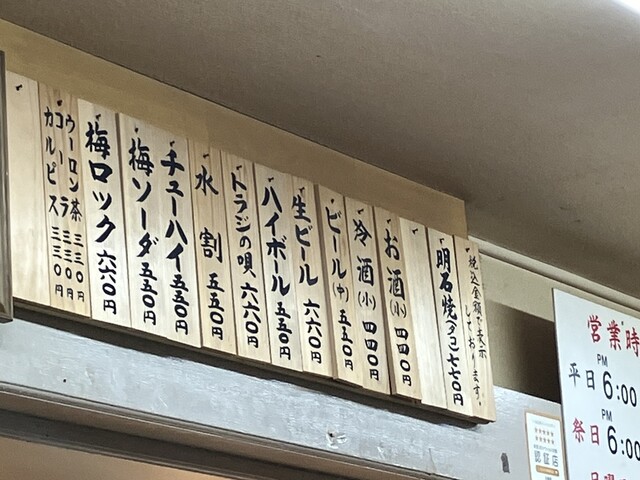 税込金額で表示
しております。
明石焼(タコ)七七〇円
お酒(小)四四〇円
冷酒(小)四四〇円
ビール(中)五五〇円
生ビール 六六〇円
ハイボール 五五〇円
トラジの唄 六六〇円
水割 五五〇円
チューハイ 五五〇円
梅ソーダ 五五〇円
梅ロック 六六〇円
ウーロン茶 三三〇円
コーラ 三三〇円
カルピス 三三〇円
営業時
平日 PM 6:00
祭日 PM 6:00
認証店